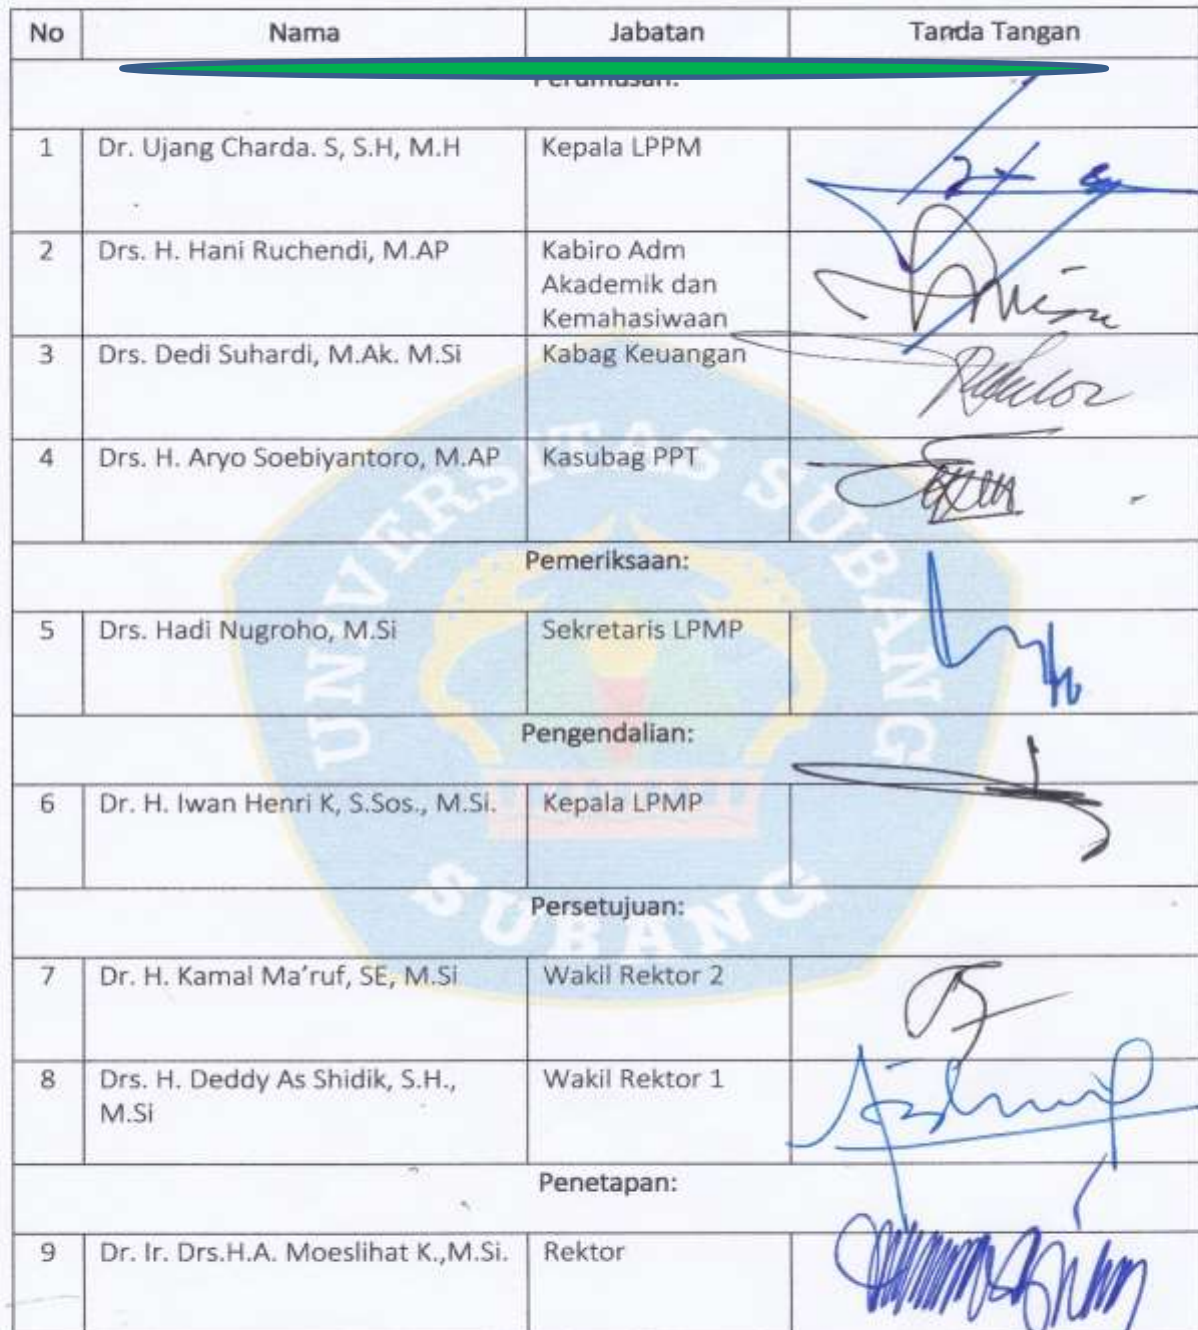 No Nama Jabatan Tanda Tangan
Perumusan:
1 Dr. Ujang Charda. S, S.H, M.H Kepala LPPM
2 Drs. H. Hani Ruchendi, M.AP Kabiro Adm
Akademik dan
Kemahasiwaan
3 Drs. Dedi Suhardi, M.Ak. M.Si Kabag Keuangan
4 Drs. H. Aryo Soebiyantoro, M.AP Kasubag PPT
Pemeriksaan:
5 Drs. Hadi Nugroho, M.Si Sekretaris LPMP
Pengendalian:
6 Dr. H. Iwan Henri K, S.Sos., M.Si. Kepala LPMP
Persetujuan:
7 Dr. H. Kamal Ma’ruf, SE, M.Si Wakil Rektor 2
8 Drs. H. Deddy As Shidik, S.H., Wakil Rektor 1
M.Si
Penetapan:
9 Dr. Ir. Drs.H.A. Moeslihat K.,M.Si. Rektor
UNIVERSITAS SUBANG
SUBANG